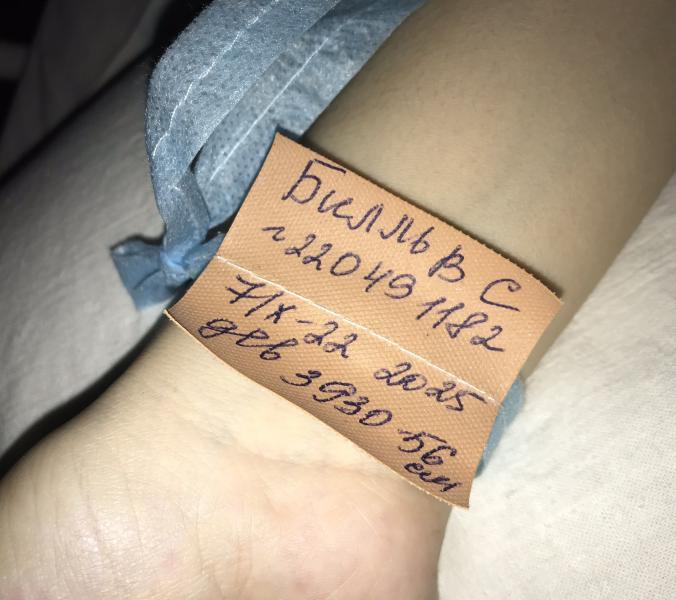 Билль В С
г 220491182
7/X-22 2025
дев 3930-56
см